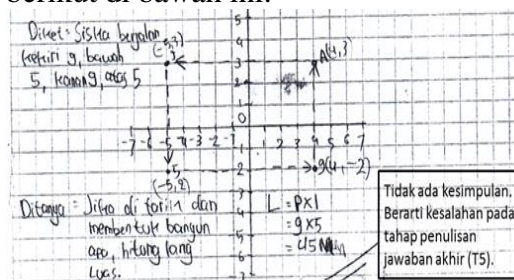 berikut di bawah ini.
Diket: Siska berjalan
kekiri 9, bawah
5, kanan 9, atas 5
(-5,3)
3
A(4,3)
5
4
3
2
1
0
-7 -6 -5 -4 -3 -2 -1 1 2 3 4 5 6 7
-1
-2
-3
-4
-5
-6
-7
5
(-5,2)
9(4,-2)
Ditanya = Jika di tarik dan
membentuk bangun
apa, hitung lang
Luas.
L = p x l
= 9 x 5
= 45
Tidak ada kesimpulan,
Berarti kesalahan pada
tahap penulisan
jawaban akhir (T5).